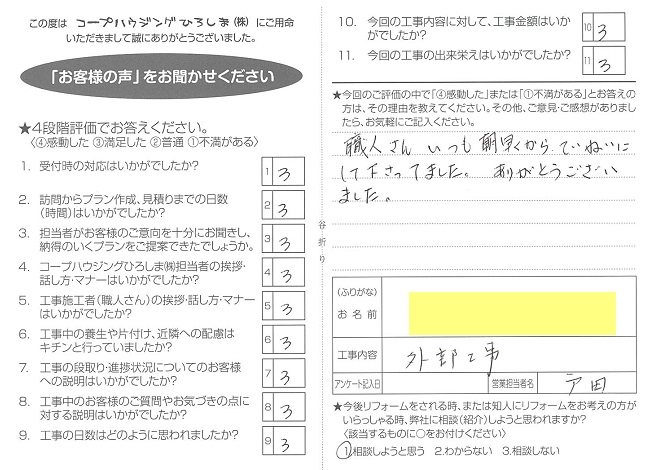 この度は コープハウジングひろしま(株) にご用命
いただきまして誠にありがとうございました。
「お客様の声」をお聞かせください
★4段階評価でお答えください。
〈④感動した ③満足した ②普通 ①不満がある〉
1. 受付時の対応はいかがでしたか?
1 3
2. 訪問からプラン作成、見積りまでの日数
(時間)はいかがでしたか?
2 3
3. 担当者がお客様のご意向を十分にお聞きし、
納得のいくプランをご提案できたでしょうか。
3 3
4. コープハウジングひろしま㈱担当者の挨拶・
話し方・マナーはいかがでしたか?
4 3
5. 工事施工者(職人さん)の挨拶・話し方・マナー
はいかがでしたか?
5 3
6. 工事中の養生や片付け、近隣への配慮は
キチンと行っていましたか?
6 3
7. 工事の段取り・進捗状況についてのお客様
への説明はいかがでしたか?
7 3
8. 工事中のお客様のご質問やお気づきの点に
対する説明はいかがでしたか?
8 3
9. 工事の日数はどのように思われましたか?
9 3
谷折り
10. 今回の工事内容に対して、工事金額はいか
がでしたか?
10 3
11. 今回の工事の出来栄えはいかがでしたか?
11 3
★今回のご評価の中で「④感動した」または「①不満がある」とお答えの
方は、その理由を教えてください。その他、ご意見・ご感想がありまし
たら、お気軽にご記入ください。
職人さん いつも 朝早くから、ていねいに
して下さってました。 ありがとうござい
ました。
(ふりがな)
お名前
工事内容
外部工事
アンケート記入日
営業担当者名
戸田
★今後リフォームをされる時、または知人にリフォームをお考えの方が
いらっしゃる時、弊社に相談(紹介)しようと思われますか?
〈該当するものに○をお付けください〉
1.相談しようと思う 2.わからない 3.相談しない